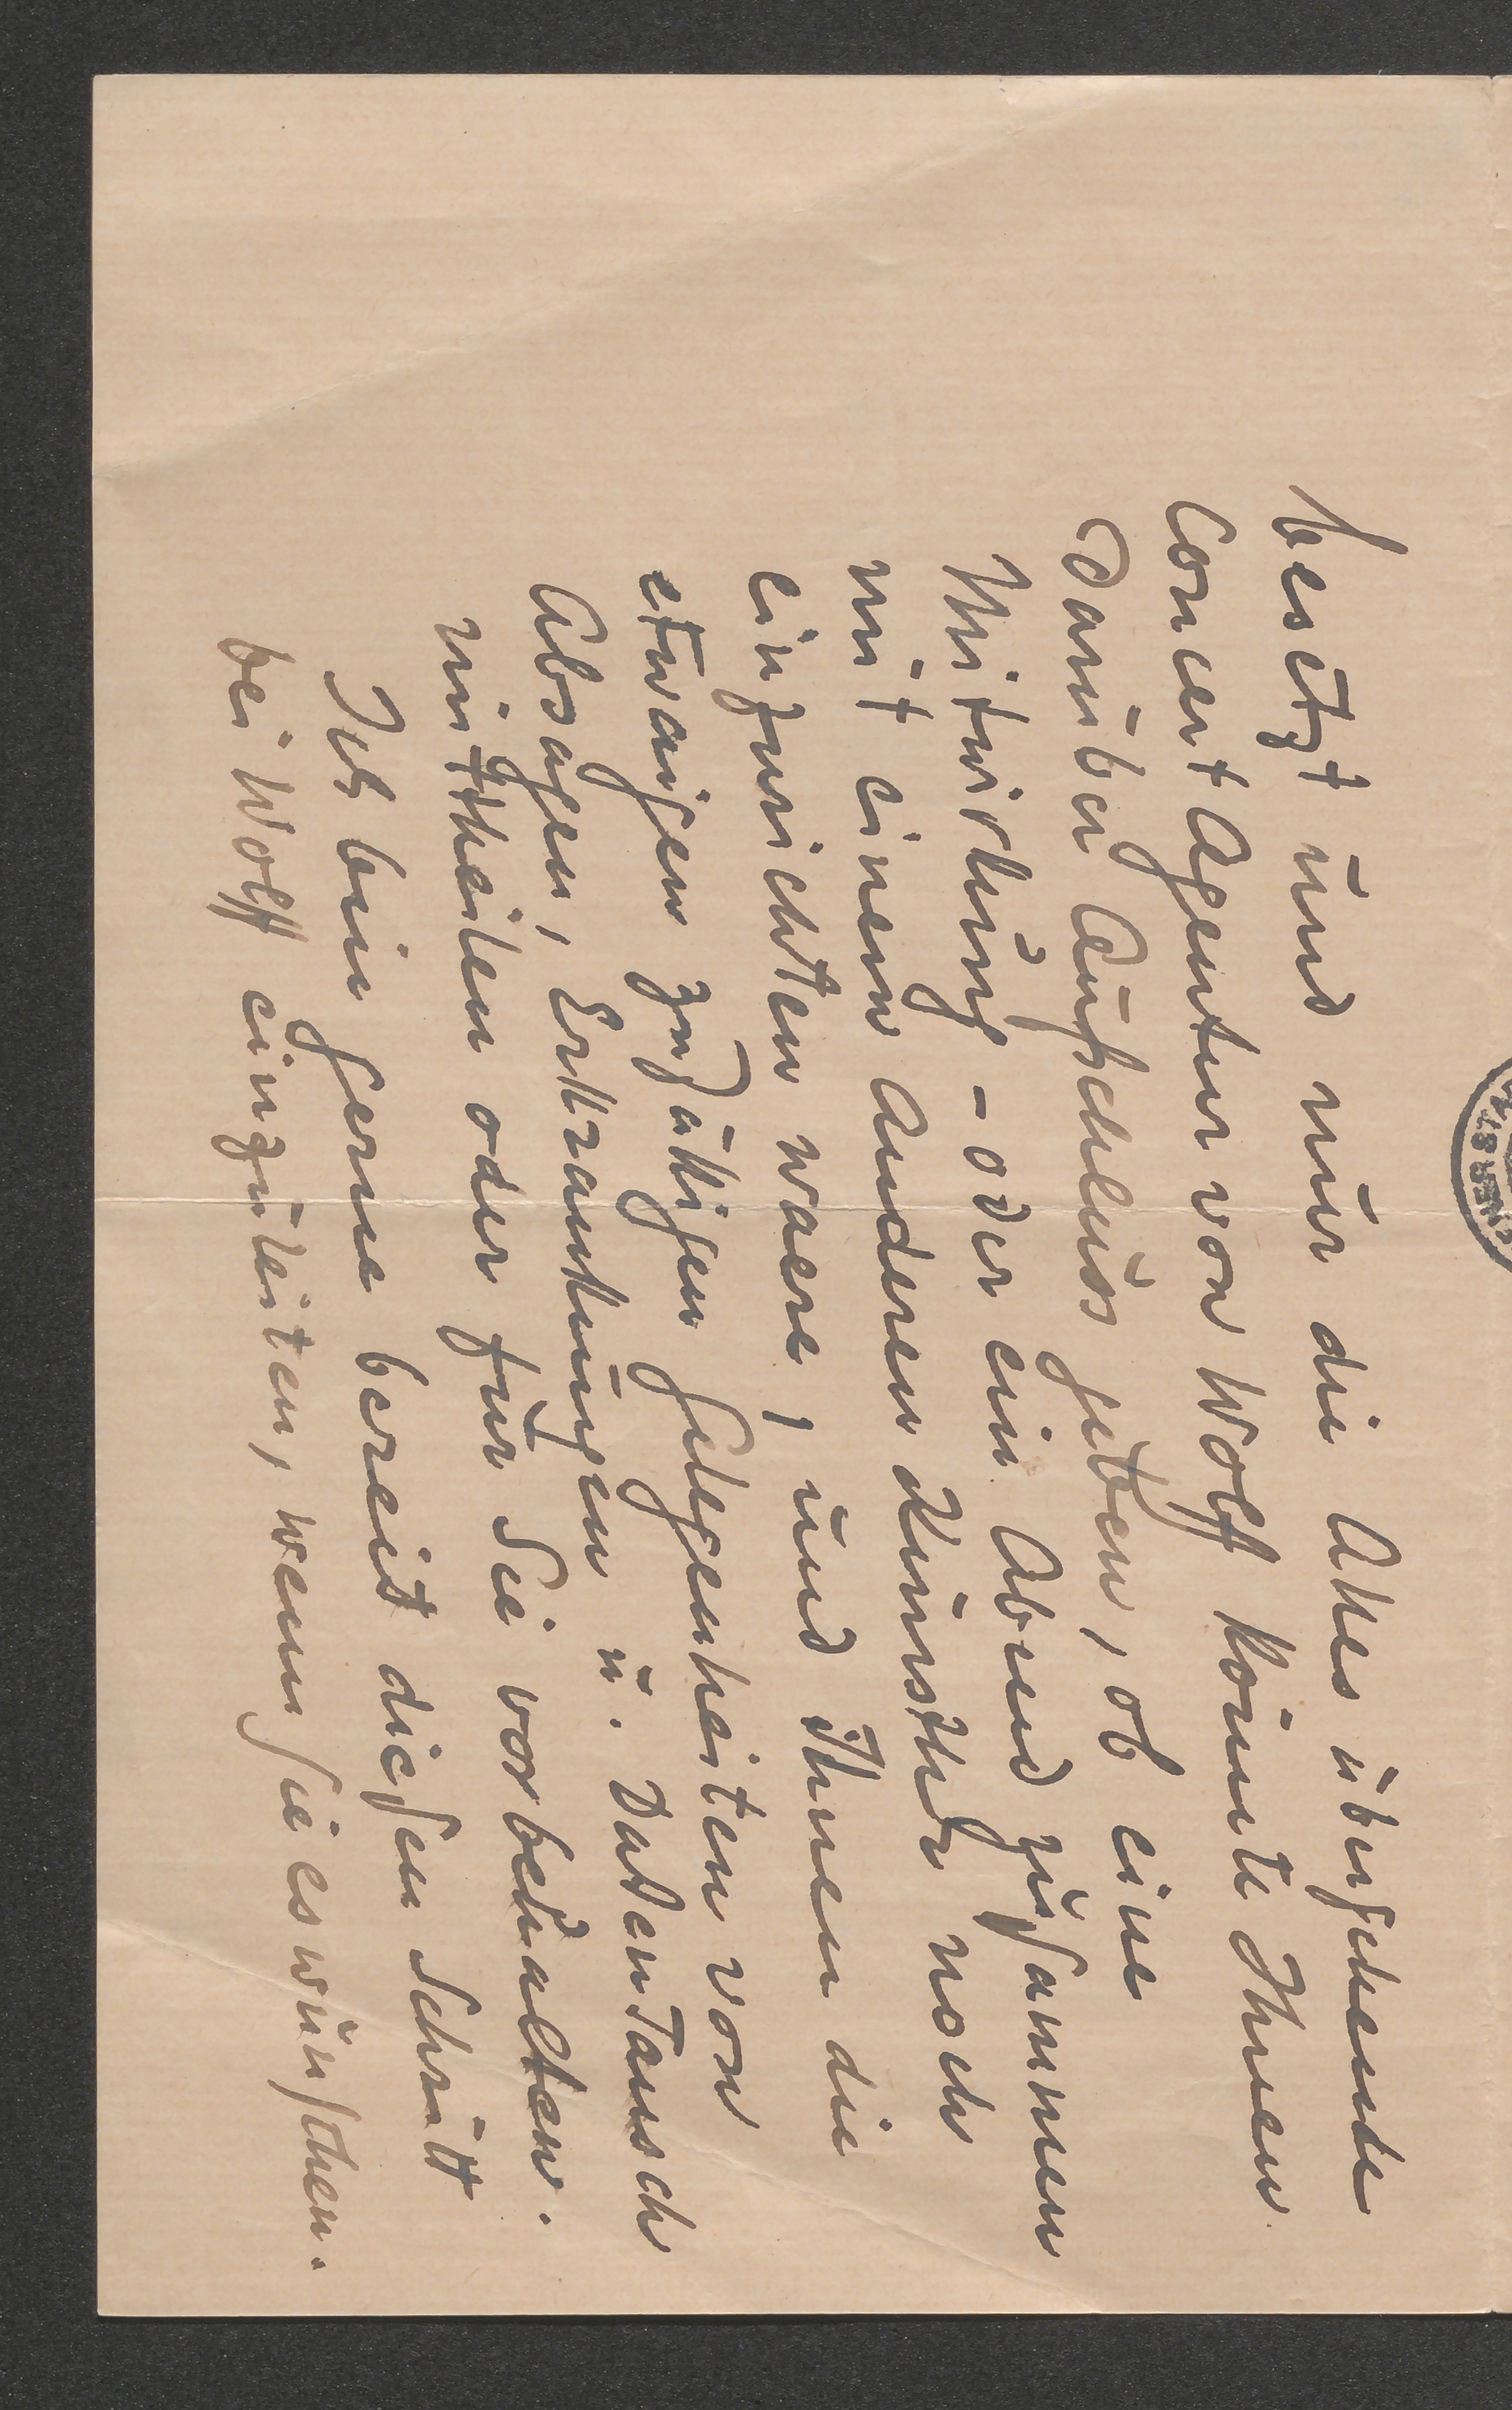 besetzt und nur die Alles übersehende
Concert Agentur von Wolff könnte Ihnen
darüber Aufschluss geben, ob eine
Mitwirkung - oder ein Abend zusammen
mit einem Anderen Künstler noch
einzurichten waere, und Ihnen die
etwaigen zufälligen Gelegenheiten von
Absagen, Erkrankungen u. Datentausch
mittheilen oder für Sie vorbehalten.
Ich bin gerne bereit diesen Schritt
bei Wolff einzuleiten, wenn Sie es wünschen.